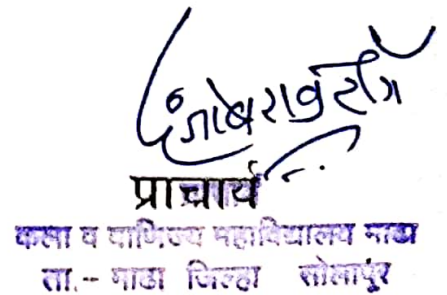 प्राचार्य
कला व वाणिज्य महाविद्यालय माढा
ता.- माढा जिल्हा सोलापूर